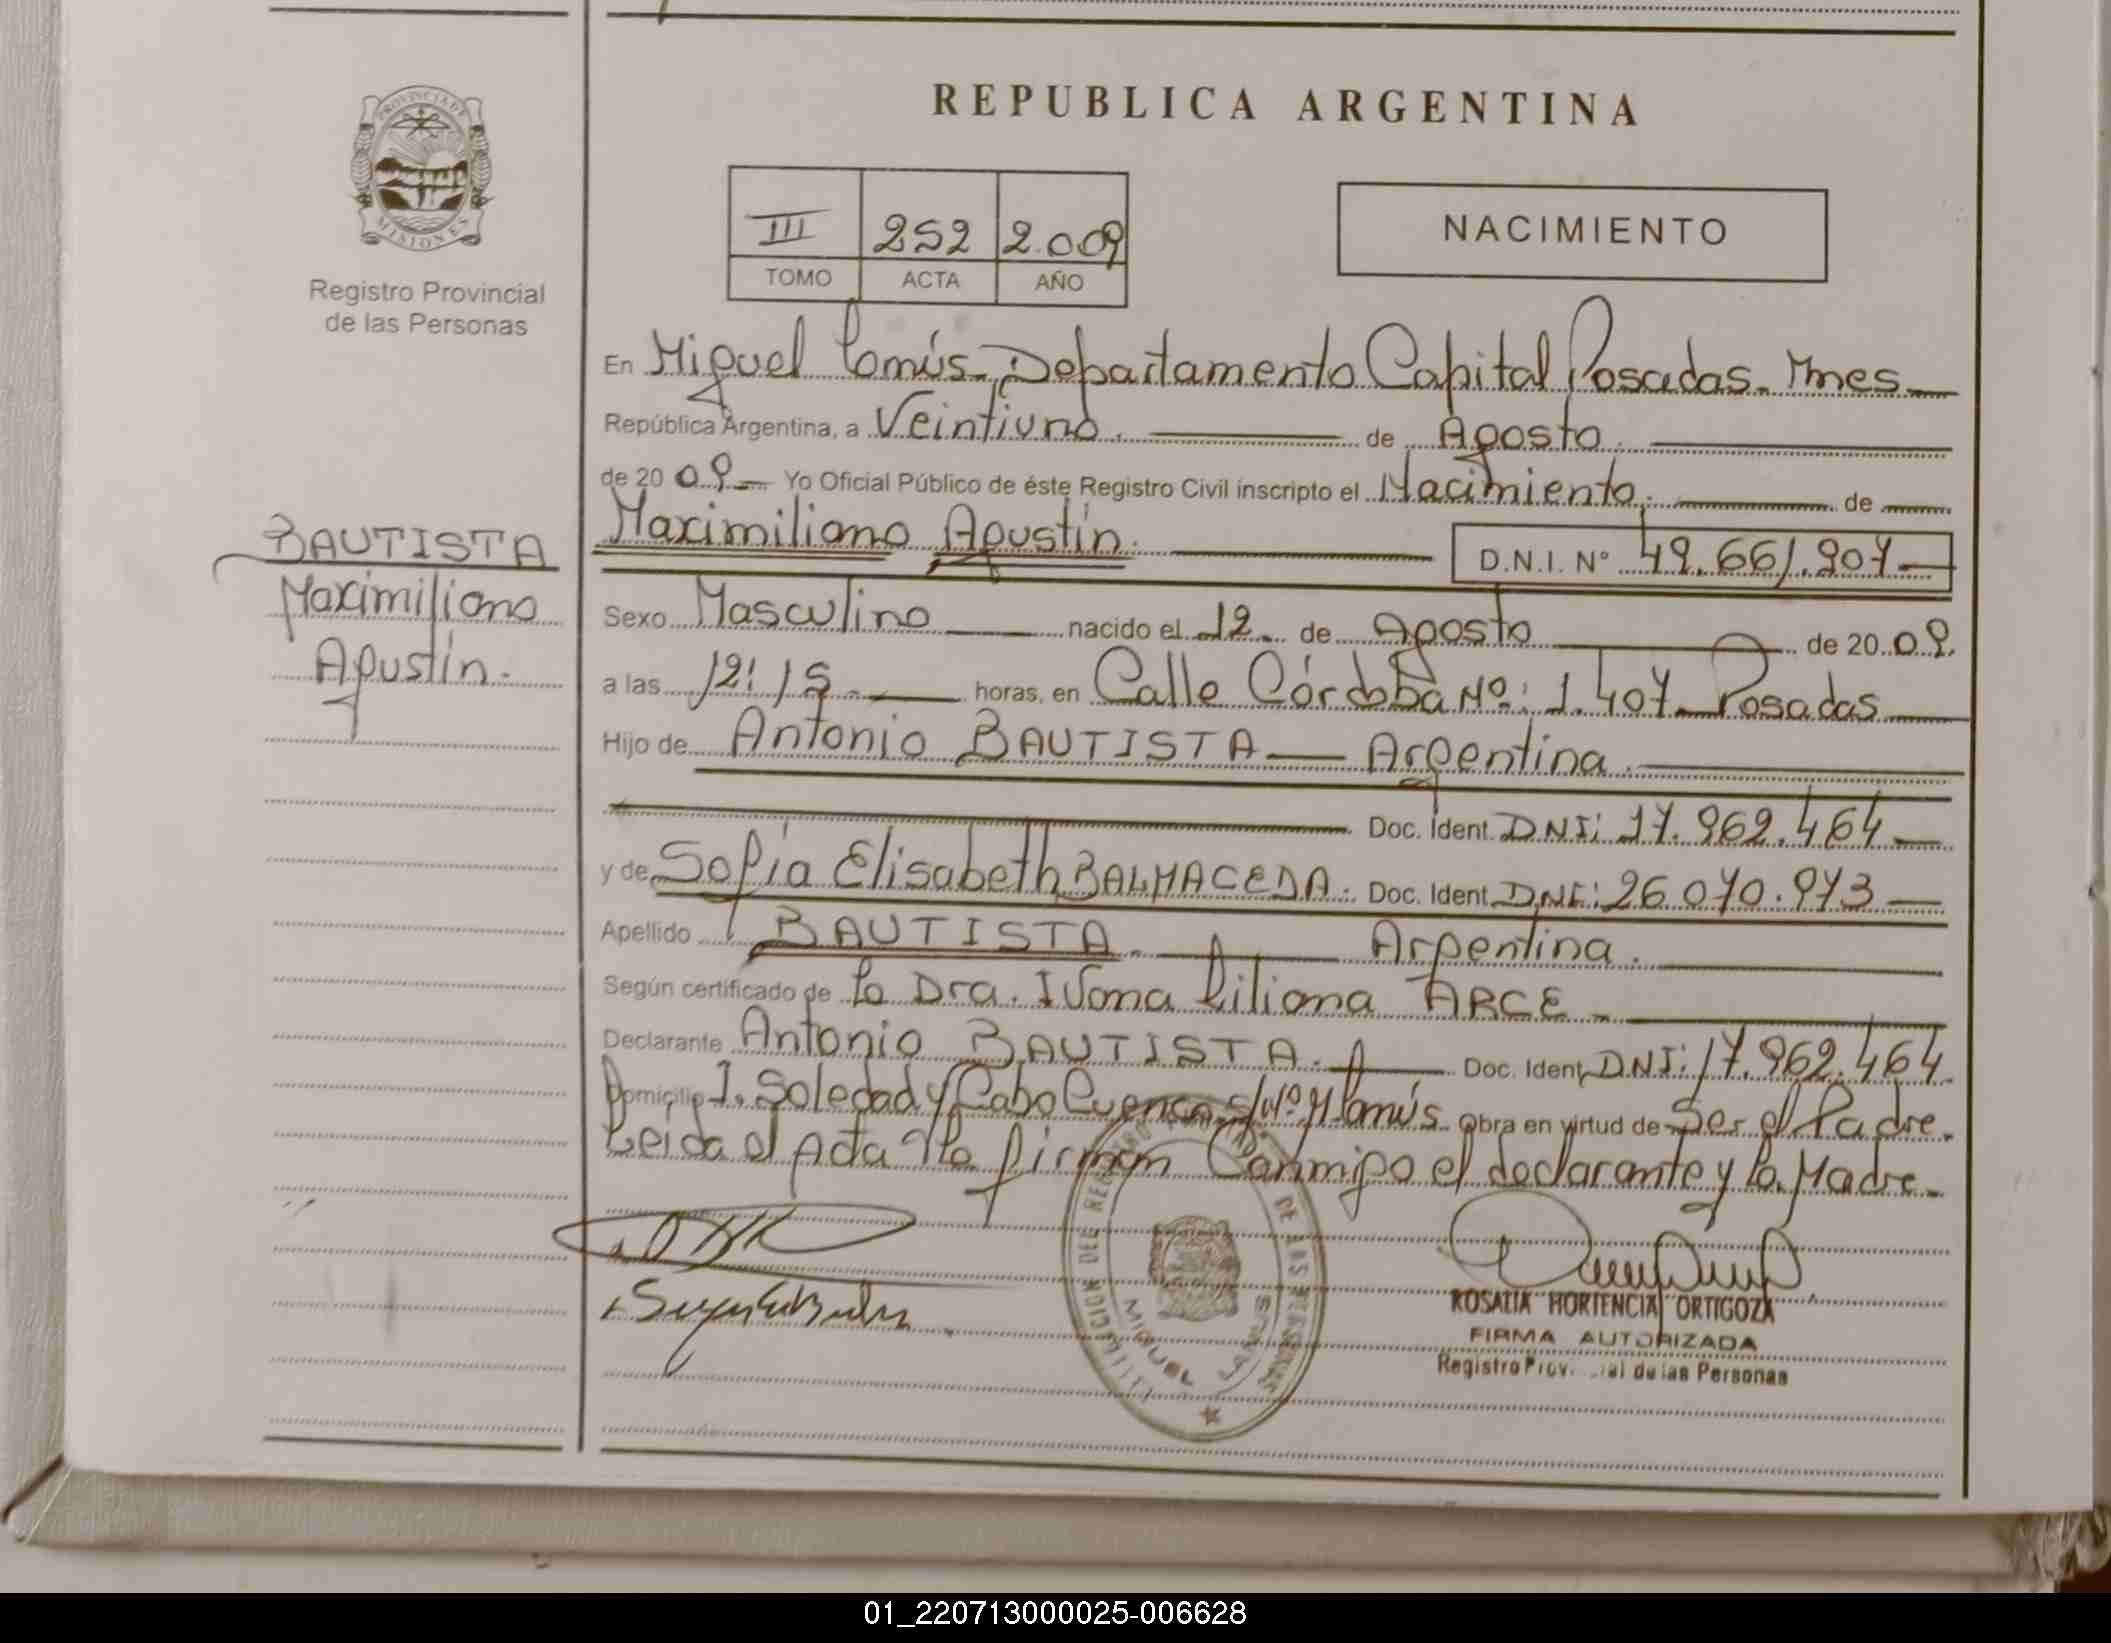 REPUBLICA ARGENTINA
PROVINCIA DE
MISIONES
Registro Provincial
de las Personas
III 252 2.009
TOMO ACTA AÑO
NACIMIENTO
En Miguel Lanús. Departamento Capital Posadas. Mnes
República Argentina, a Veintiuno. de Agosto.
de 20 09 Yo Oficial Público de éste Registro Civil inscripto el Nacimiento. de
Maximiliano Agustín. D.N.I. Nº 49.661.907
BAUTISTA
Maximiliano
Agustín.
Sexo Masculino nacido el 12 de Agosto de 20 09.
a las 12:15 horas, en Calle Córdoba Nº: 1.407 Posadas
Hijo de Antonio BAUTISTA Argentina.
Doc. Ident. DNI: 17.962.464
y de Sofía Elisabeth BALMACEDA. Doc. Ident. DNI: 26.070.973
Apellido BAUTISTA. Argentina.
Según certificado de la Dra. Ivona Liliana ARCE
Declarante Antonio BAUTISTA. Doc. Ident. DNI: 17.962.464
Domicilio I. Soledad y Cabo Cuenca s/Nº M. Lanús. Obra en virtud de Ser el Padre.
Leida el Acta la firman Conmigo el declarante y la Madre.
DE LAS PERSONAS
MIGUEL LANUS
ROSALIA HORTENCIA ORTIGOZA
FIRMA AUTORIZADA
Registro de las Personas
01_220713000025-006628